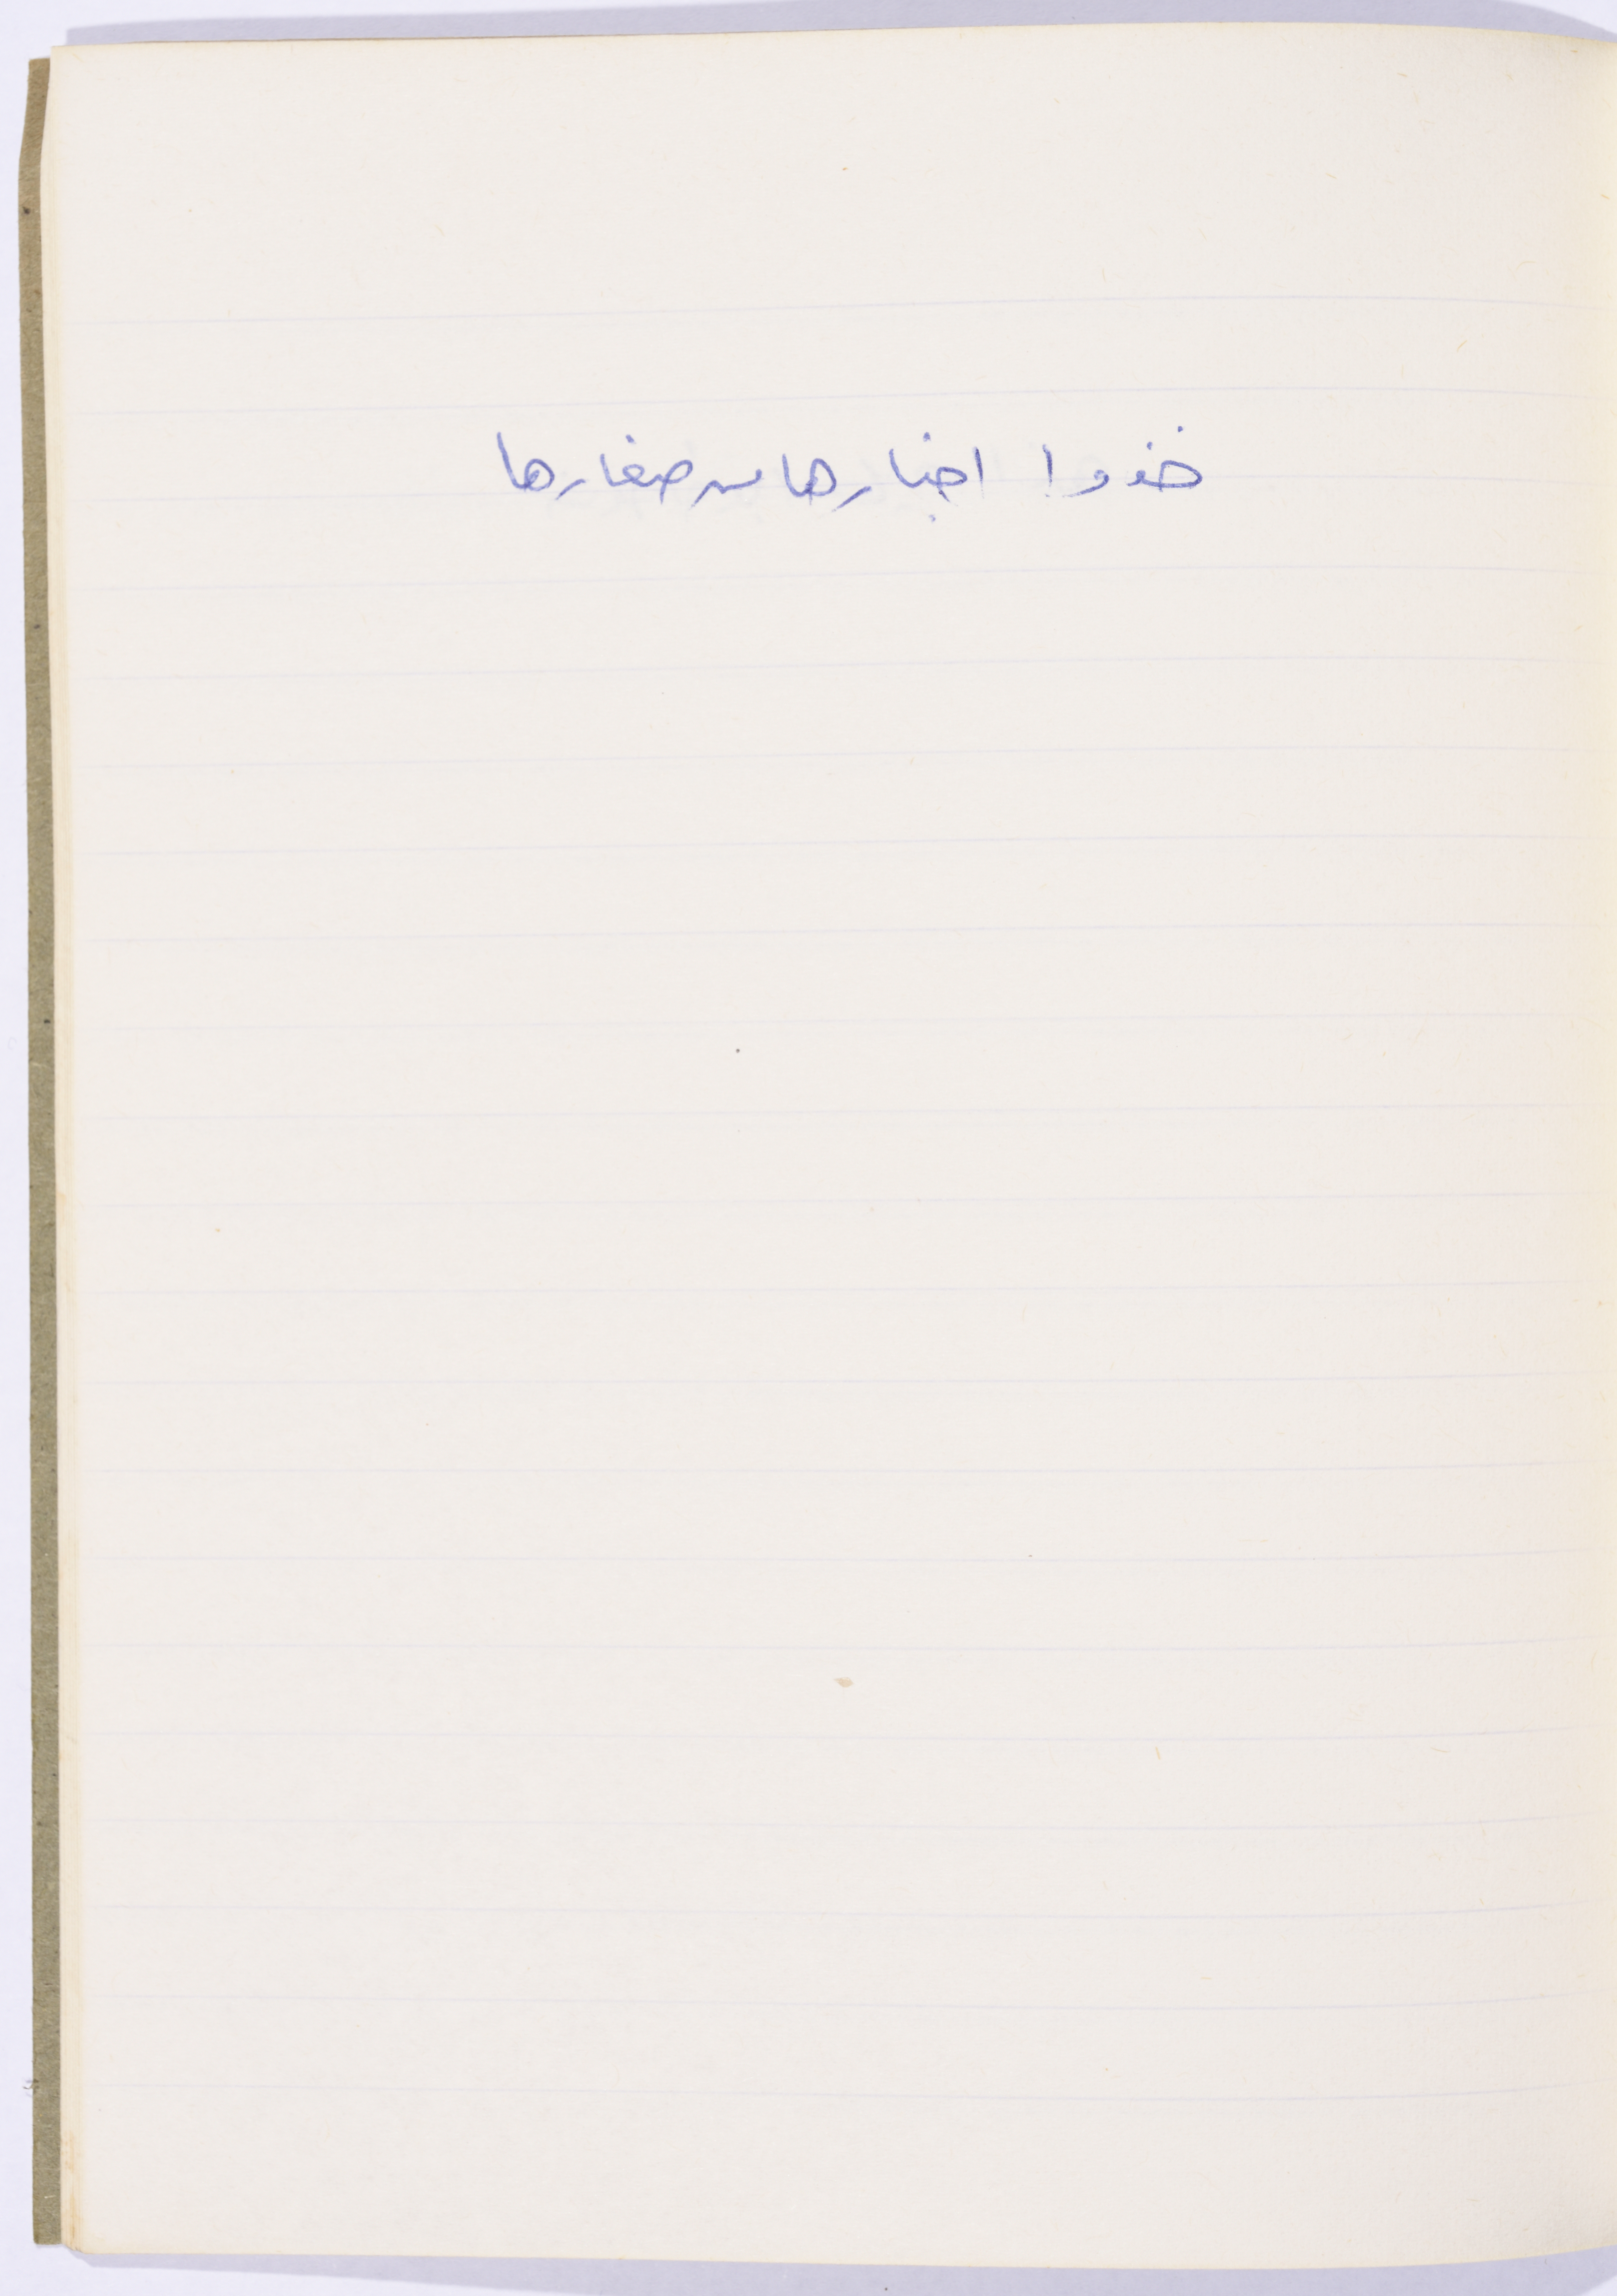 خذوا اخبارها من صغارها